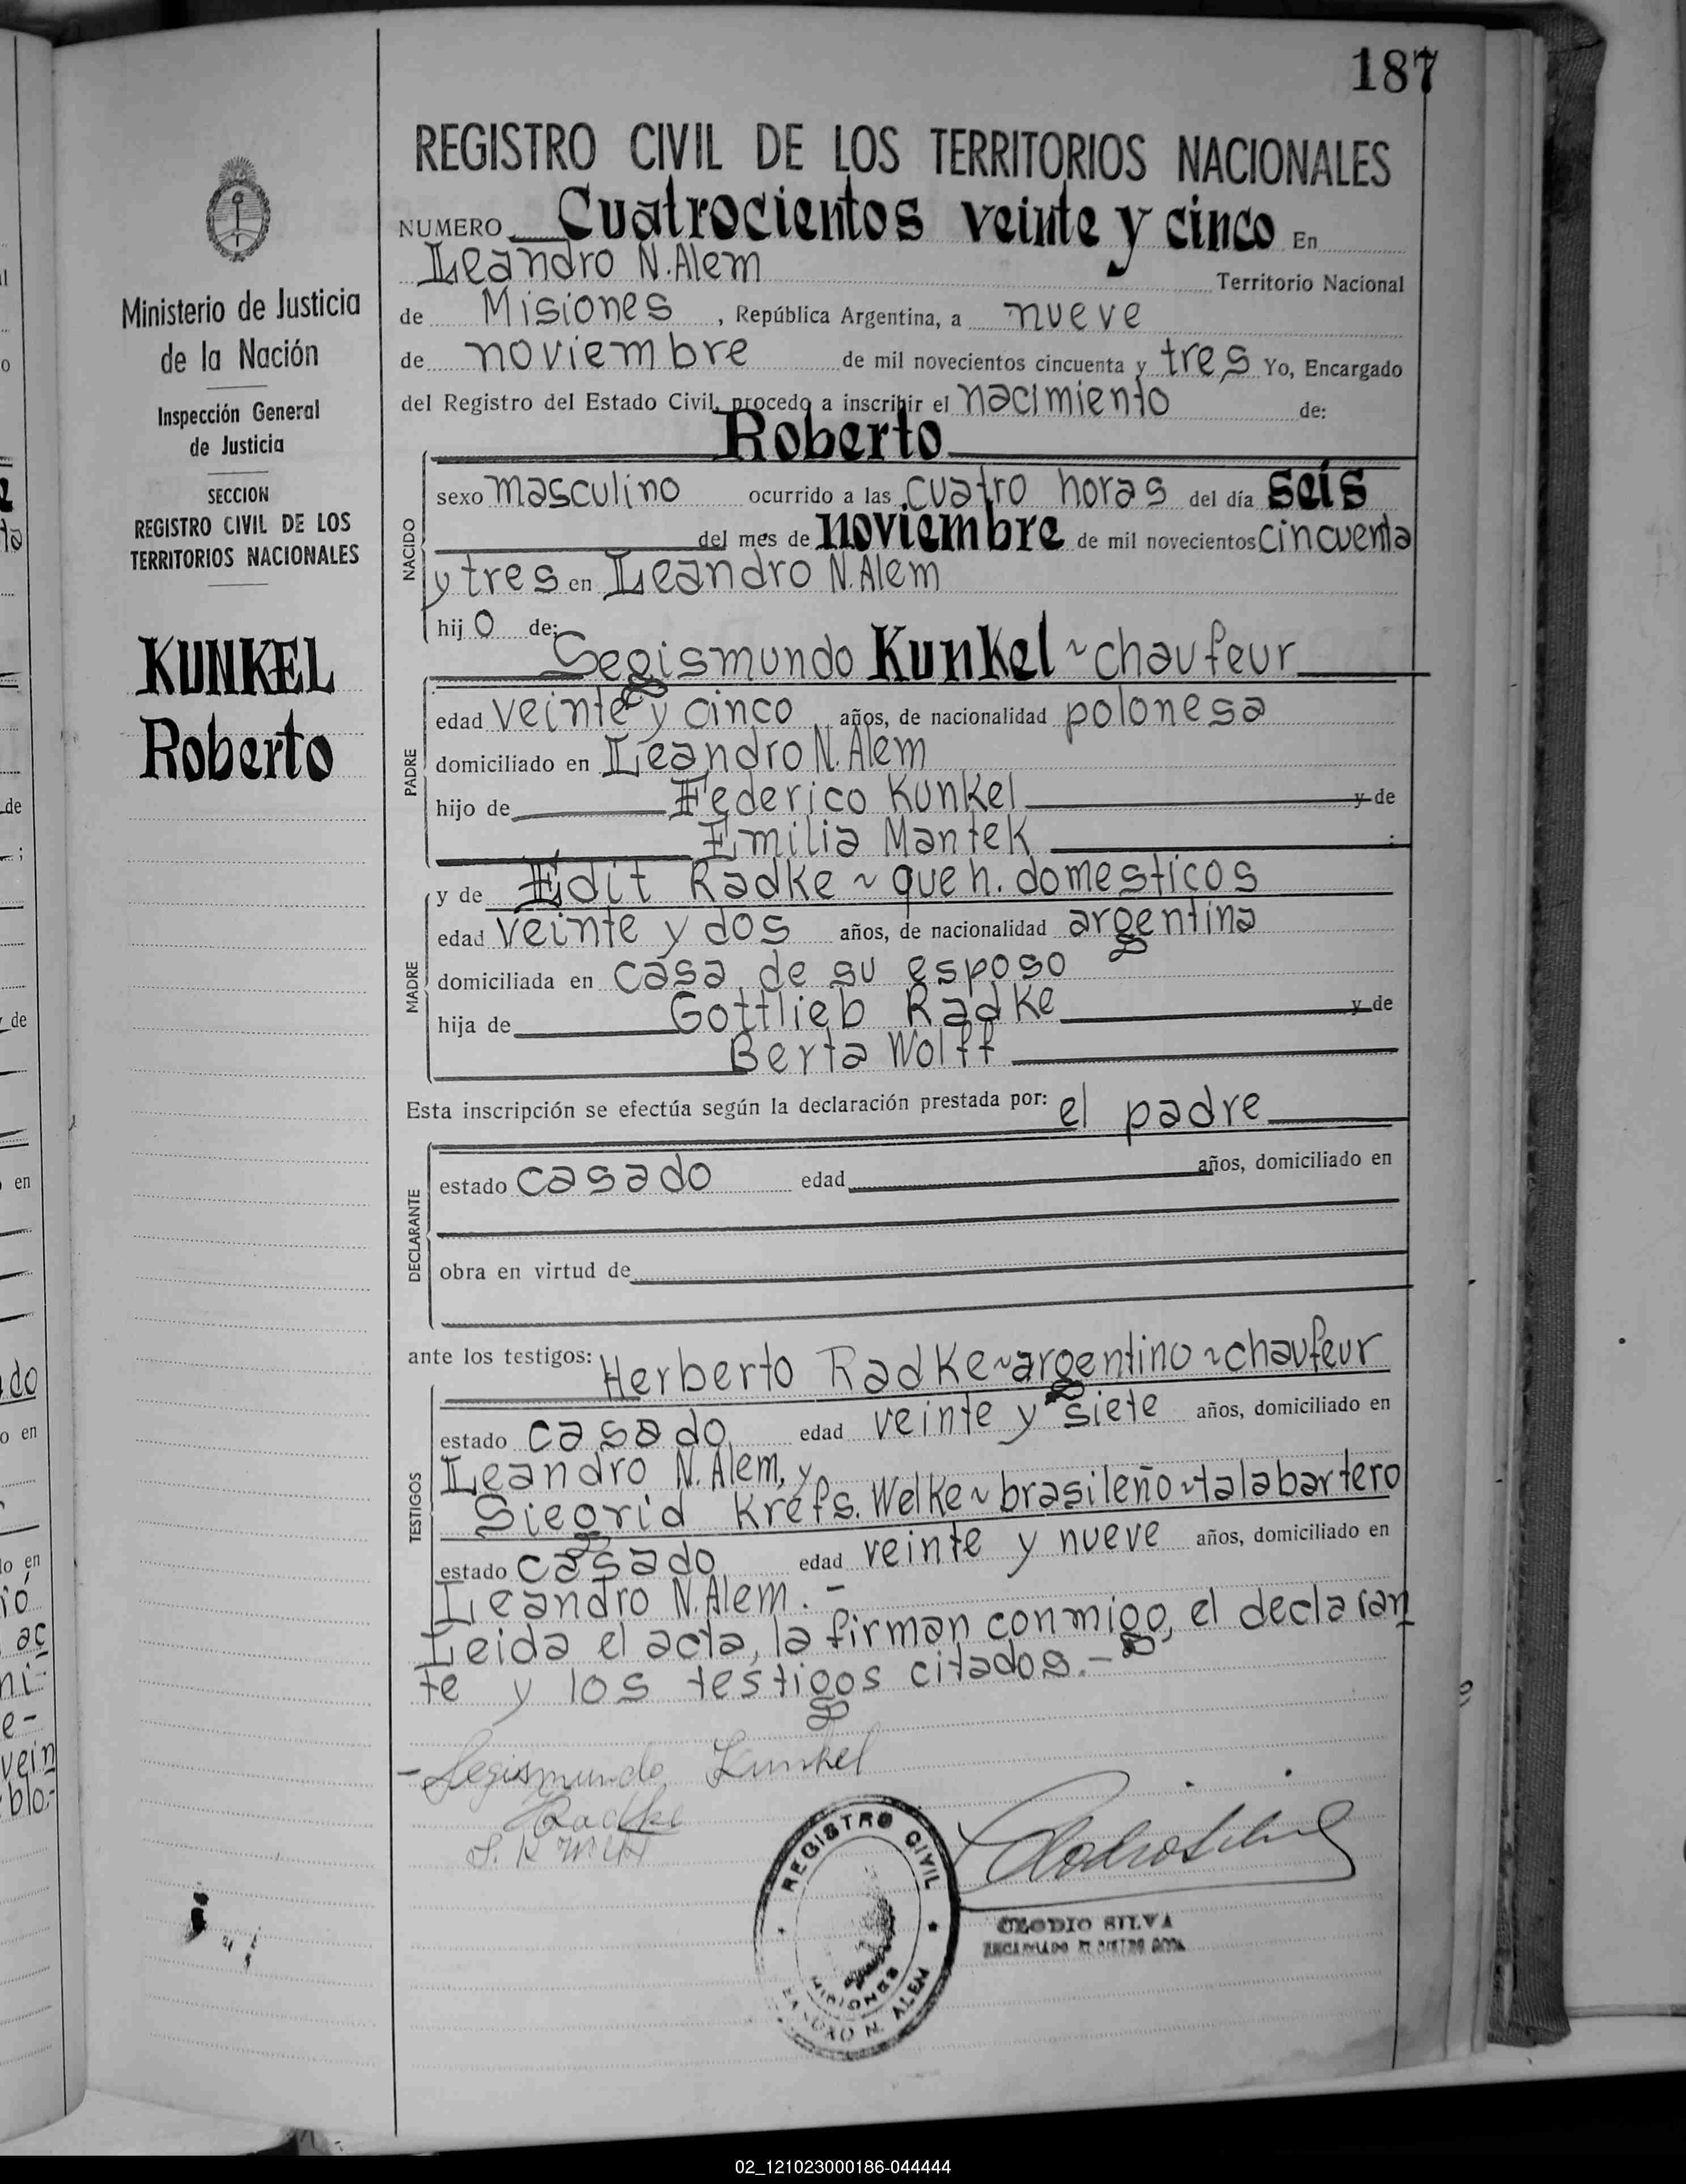 187
REGISTRO CIVIL DE LOS TERRITORIOS NACIONALES
NUMERO Cuatrocientos veinte y cinco En
Leandro N. Alem Territorio Nacional
de Misiones, República Argentina, a nueve
de noviembre de mil novecientos cincuenta y tres Yo, Encargado
del Registro del Estado Civil, procedo a inscribir el nacimiento de:
Roberto
NACIDO
sexo masculino ocurrido a las cuatro horas del día seis
del mes de noviembre de mil novecientos cincuenta
y tres en Leandro N. Alem
hijo de:
Segismundo Kunkel ~ chaufeur
PADRE
edad veinte y cinco años, de nacionalidad polonesa
domiciliado en Leandro N. Alem
hijo de Federico Kunkel y de
Emilia Mantek :
MADRE
y de Edit Radke ~ que h. domesticos
edad veinte y dos años, de nacionalidad argentina
domiciliada en casa de su esposo
hija de Gottlieb Radke y de
Berta Wolff
Esta inscripción se efectúa según la declaración prestada por: el padre
DECLARANTE
estado casado edad años, domiciliado en
obra en virtud de
ante los testigos: Herberto Radke ~ argentino ~ chaufeur
TESTIGOS
estado casado edad veinte y siete años, domiciliado en
Leandro N. Alem, y
Siegrid Krefs. Welke ~ brasileño ~ talabartero
estado casado edad veinte y nueve años, domiciliado en
Leandro N. Alem. -
Leida el acta, la firman conmigo, el declaran
te y los testigos citados. -
- Segismundo Kunkel
Radke
REGISTRO CIVIL
MISIONES
N. ALEM
CLODIO SILVA
Ministerio de Justicia
de la Nación
Inspección General
de Justicia
SECCION
REGISTRO CIVIL DE LOS
TERRITORIOS NACIONALES
KUNKEL
Roberto
02_121023000186-044444